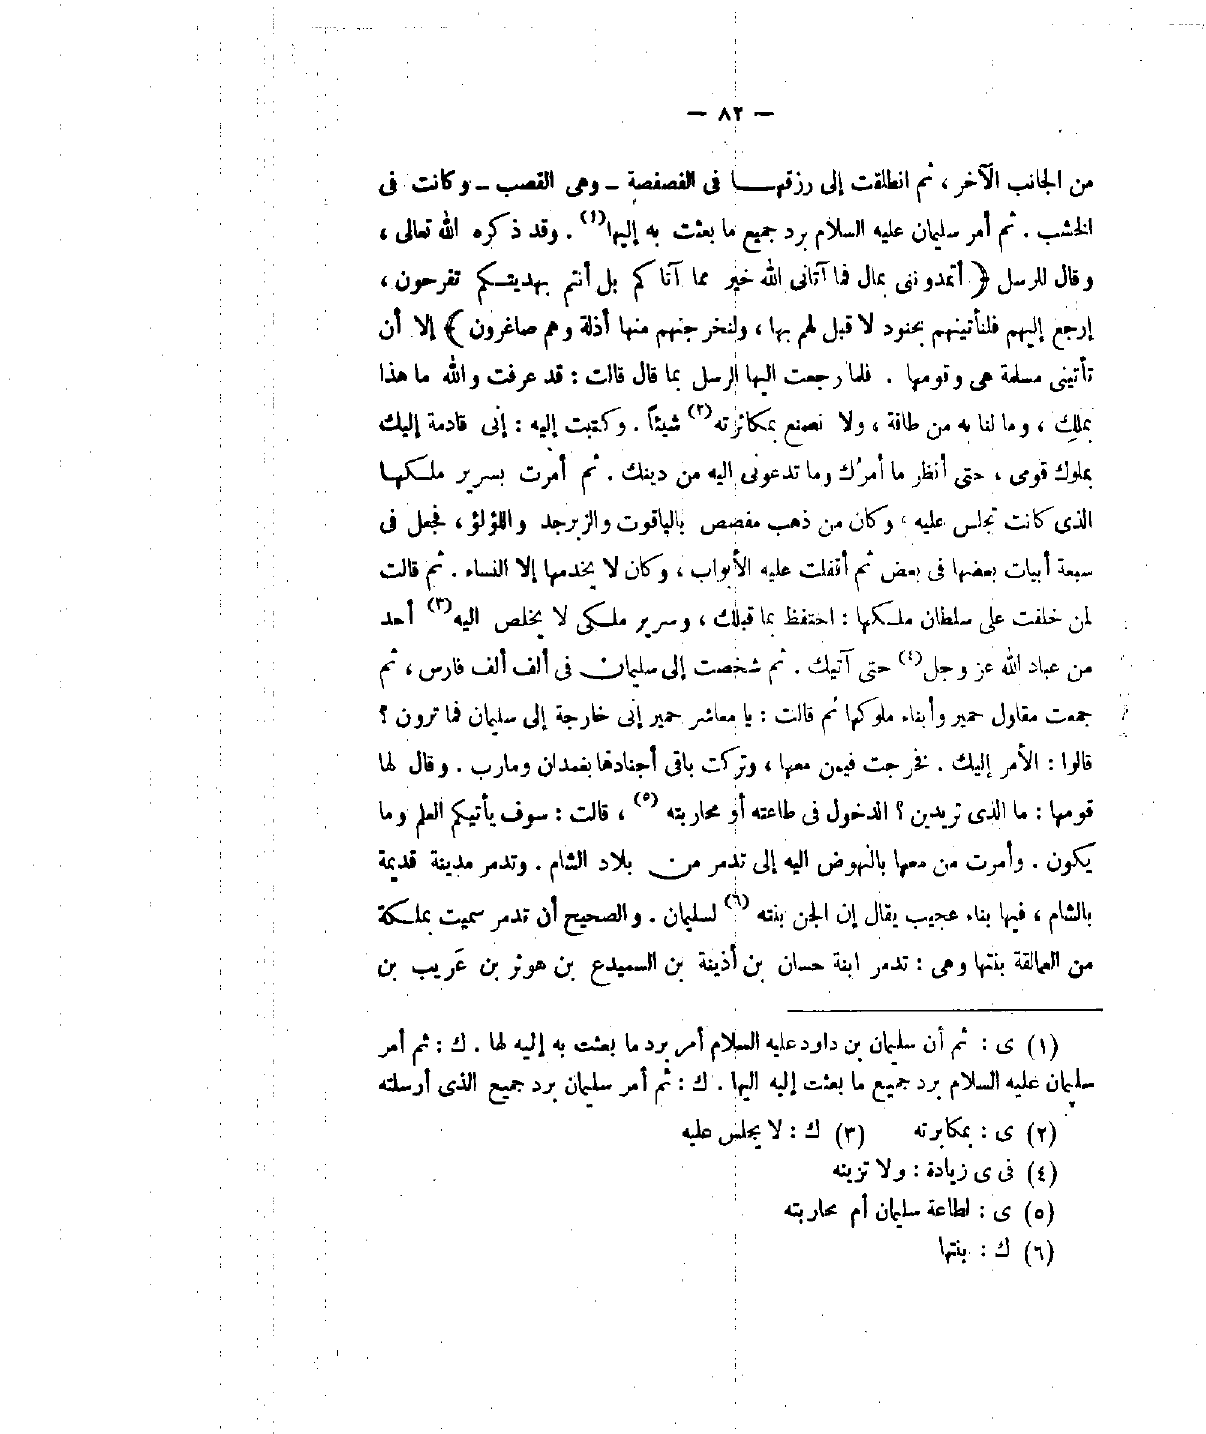 — ٨٢ —
من الجانب الآخر ، ثم انطلقت إلى رزقهـــا فى الفصفصة - وهى القصب - وكانت فى
الخشب . ثم أمر سليمان عليه السلام برد جميع ما بعثت به إليها(١) . وقد ذكره الله تعالى ،
وقال للرسل ﴿ أتمدوننى بمال فما آتانى الله خير مما آتاكم بل أنتم بهديتـكم تفرحون ،
إرجع إليهم فلنأتينهم بجنود لا قبل لهم بها ، ولنخرجنهم منها أذلة وهم صاغرون ﴾ إلا أن
تأتينى مسلمة هى وقومها . فلما رجعت اليها الرسل بما قال قالت : قد عرفت والله ما هذا
بملكِ ، وما لنا به من طاقة ، ولا نصنع بمكاثرته(٢) شيئاً . وكتبت إليه : إنى قادمة إليك
بملوك قومى ، حتى أنظر ما أمرُك وما تدعونى اليه من دينك . ثم أمرت بسرير ملـكها
الذى كانت تجلس عليه ، وكان من ذهب مفصص بالياقوت والزبرجد واللؤلؤ ، فجعل فى
سبعة أبيات بعضها فى بعض ثم أقفلت عليه الأبواب ، وكان لا يخدمها إلا النساء . ثم قالت
لمن خلفت على سلطان ملـكها : احتفظ بما قبلك ، وسرير ملـكى لا يخلص اليه(٣) أحد
من عباد الله عز وجل(٤) حتى آتيك . ثم شخصت إلى سليمان فى ألف ألف فارس ، ثم
جمعت مقاول حمير وأبناء ملوكها ثم قالت : يا معاشر حمير إنى خارجة إلى سليمان فما ترون ؟
قالوا : الأمر إليك . فخرجت فيمن معها ، وتركت باقى أجنادها بغمدان ومارب . وقال لها
قومها : ما الذى تريدين ؟ الدخول فى طاعته أو محاربته (٥) ، قالت : سوف يأتيكم العلم وما
يكون . وأمرت من معها بالنهوض اليه إلى تدمر من بلاد الشام . وتدمر مدينة قديمة
بالشام ، فيها بناء عجيب يقال إن الجن بنته (٦) لسليمان . والصحيح أن تدمر سميت بملـكة
من العمالقة بنتها وهى : تدمر ابنة حسان بن أذينة بن السميدع بن هوثر بن عَريب بن
(١) ى : ثم أن سليمان بن داود عليه السلام أمر برد ما بعثت به إليه لها . ك : ثم أمر
سليمان عليه السلام برد جميع ما بعثت إليه اليها . ك : ثم أمر سليمان برد جميع الذى أرسلته
(٢) ى : بمكابرته (٣) ك : لا يجلس عليه
(٤) فى ى زيادة : ولا تزينه
(٥) ى : لطاعة سليمان أم محاربته
(٦) ك : بنتها